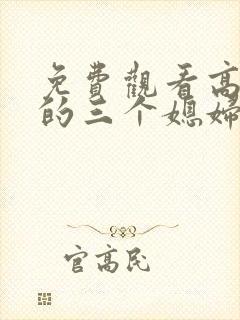 免費觀看高
的三个媳婦
官高民